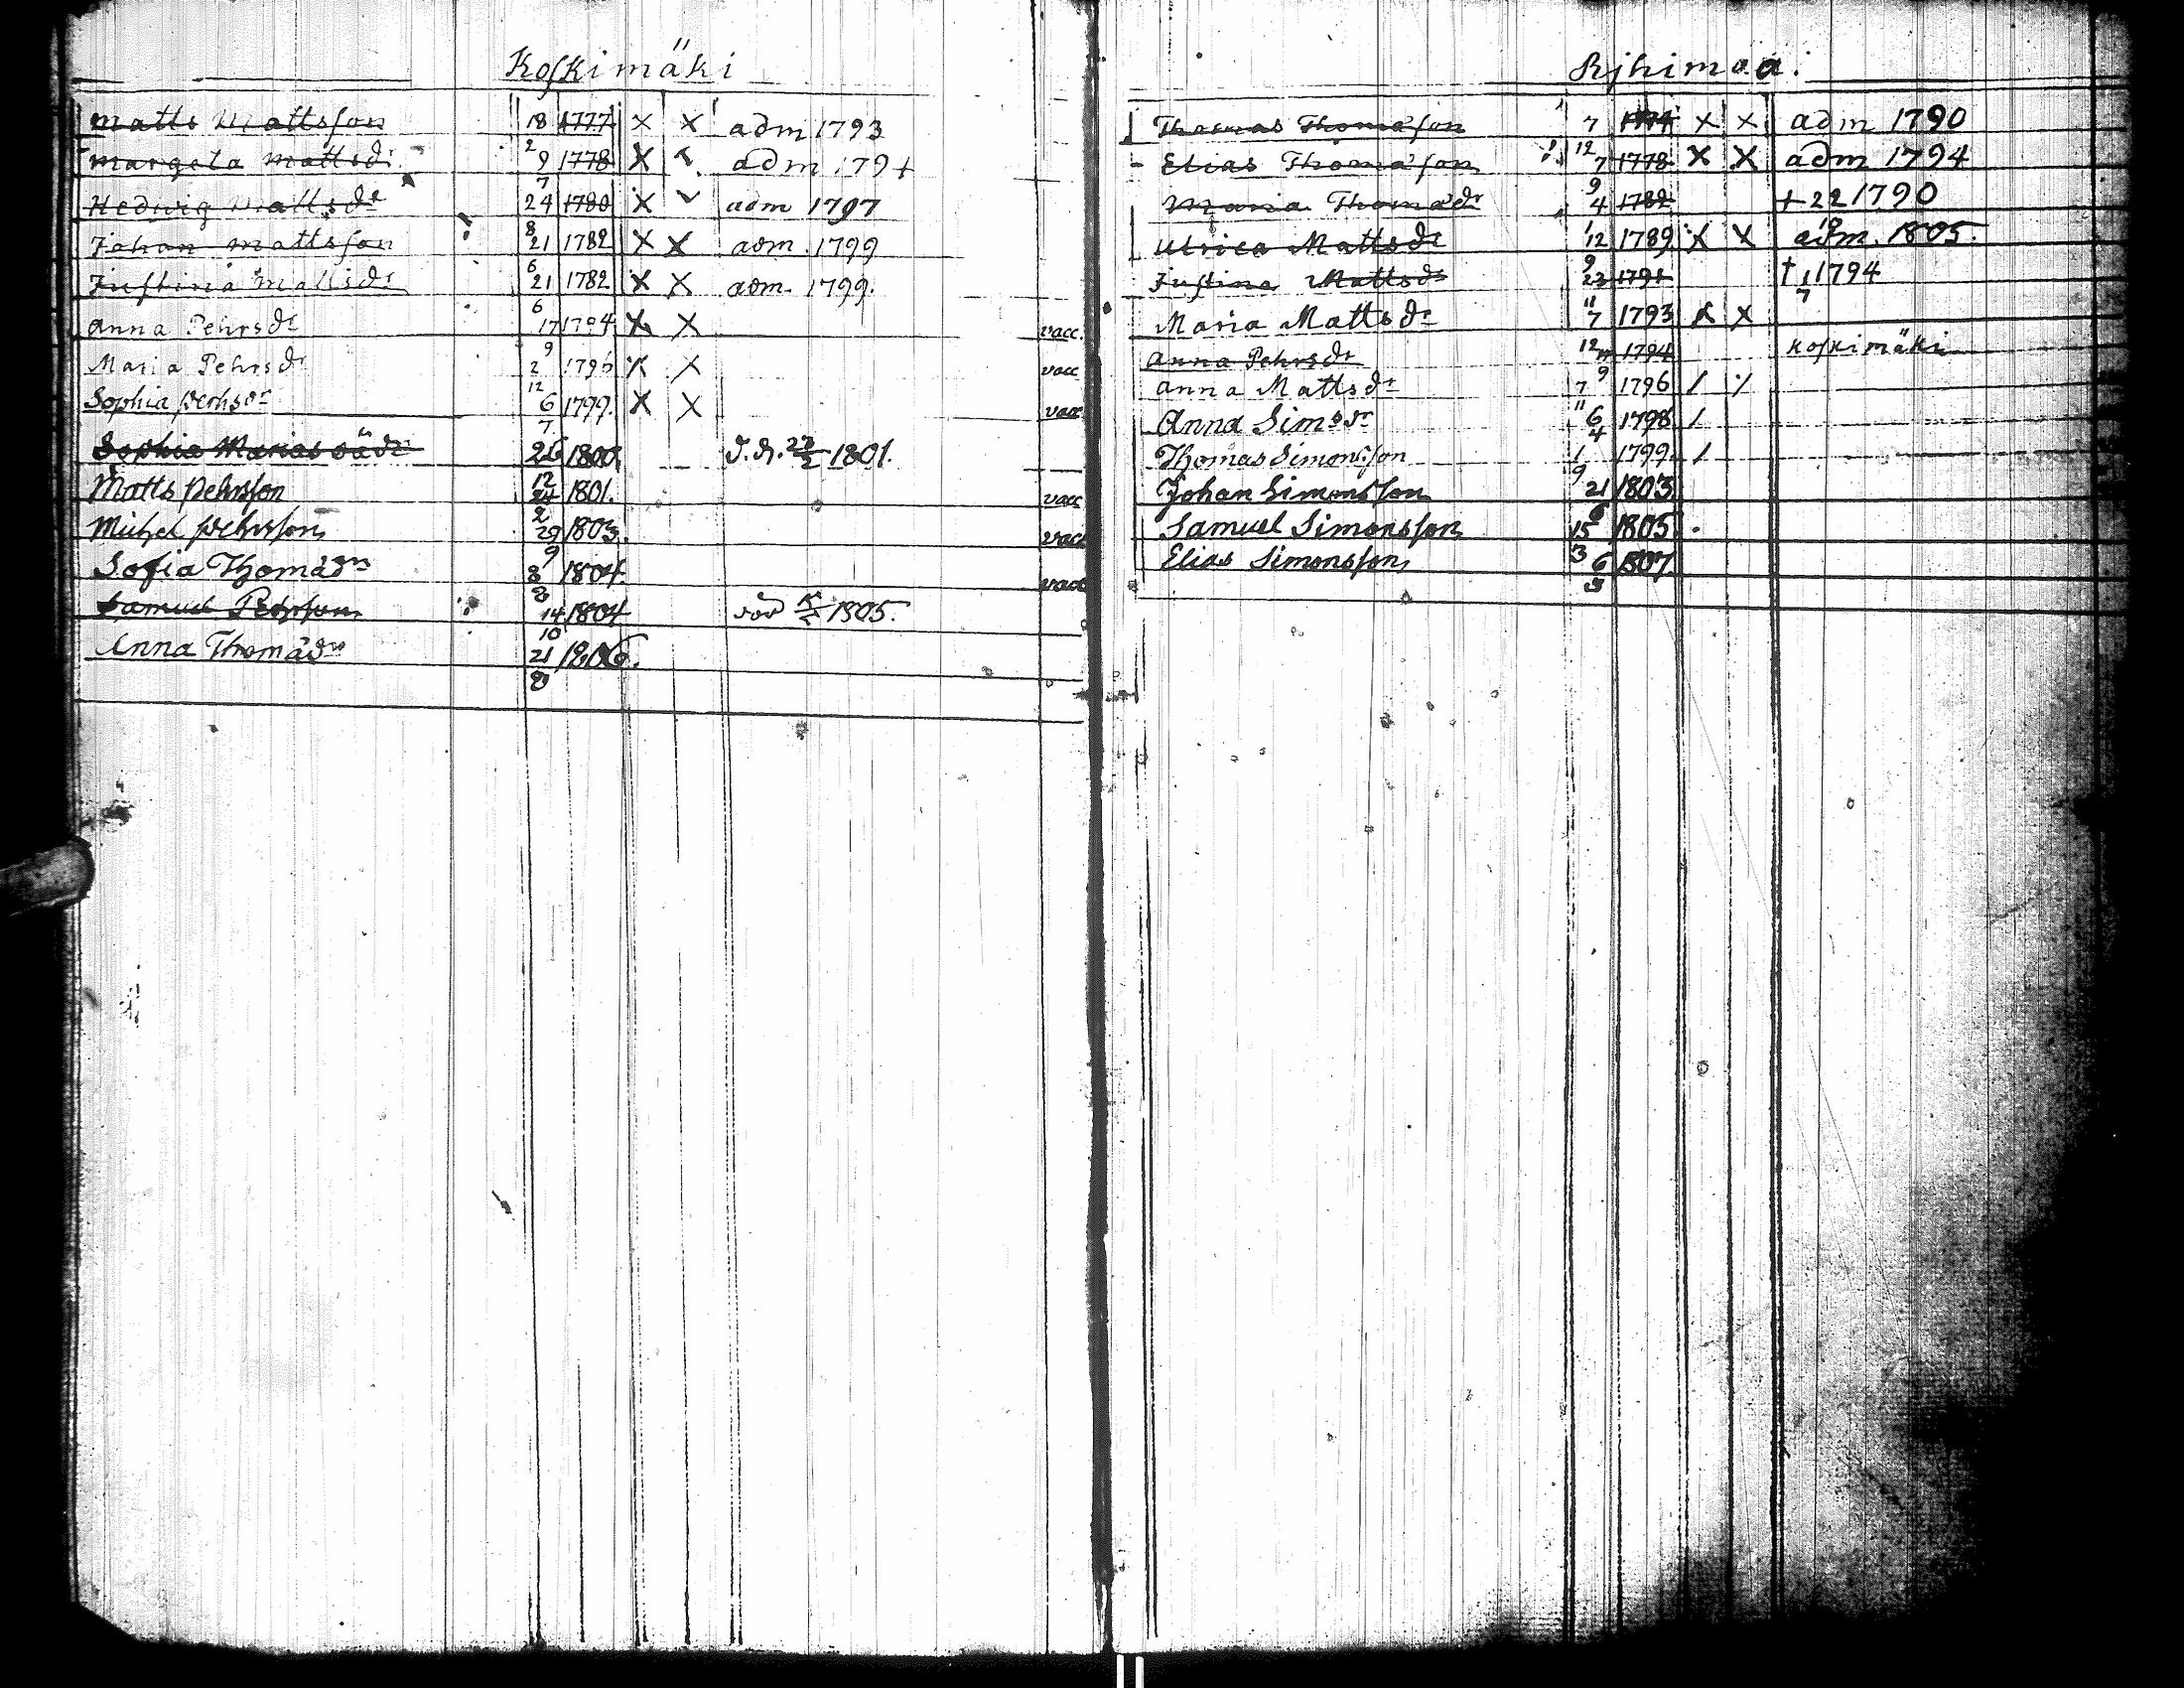 Koskimäki
Matts Mattsson 18/2 1777 × × adm 1793
Margeta Mattsdr 9/7 1778 × adm 1794
Hedwig Mattsdr 24/8 1780 × adm 1797
Johan Mattsson 21/6 1782 × × adm. 1799
Justina Mattsdr 21/6 1782 × × adm. 1799.
Anna Pehrsdr 17/9 1794 × × vacc.
Maria Pehrsdr 2/12 1796 × × vacc
Sophia Pehrsdr 6/7 1799. × × vacc
Sophia Mariasdr 26/12 1800. 1801.
Matts Pehrsson 24/2 1801. vacc
Michel Pehrsson 29/9 1803. vacc
Sofia Thomädr 8/8 1804. vacc
Samuel Pehrsson 14/10 1804 död 1805.
Anna Thomädr 21/8 1806.
Rjhimaa.
Thomas Thomäson 7/12 1774 × × adm 1790
Elias Thomäson 7/9 1778 × × adm 1794
Maria Thomädr 4/1 1782 † 22 1790
Ulrica Mattsdr 12/9 1789 × × adm. 1805.
Justina Mattsdr 23/11 1791 † 1/7 1794
Maria Mattsdr 7/12 1793 × ×
Anna Pehrsdr 17/9 1794 Koskimäki
Anna Mattsdr 7/11 1796 /
Anna Simsdr 6/4 1798 /
Thomas Simonsson 1/9 1799. /
Johan Simonsson 21/6 1803
Samuel Simonsson 15/3 1805.
Elias Simonsson 6/3 1807